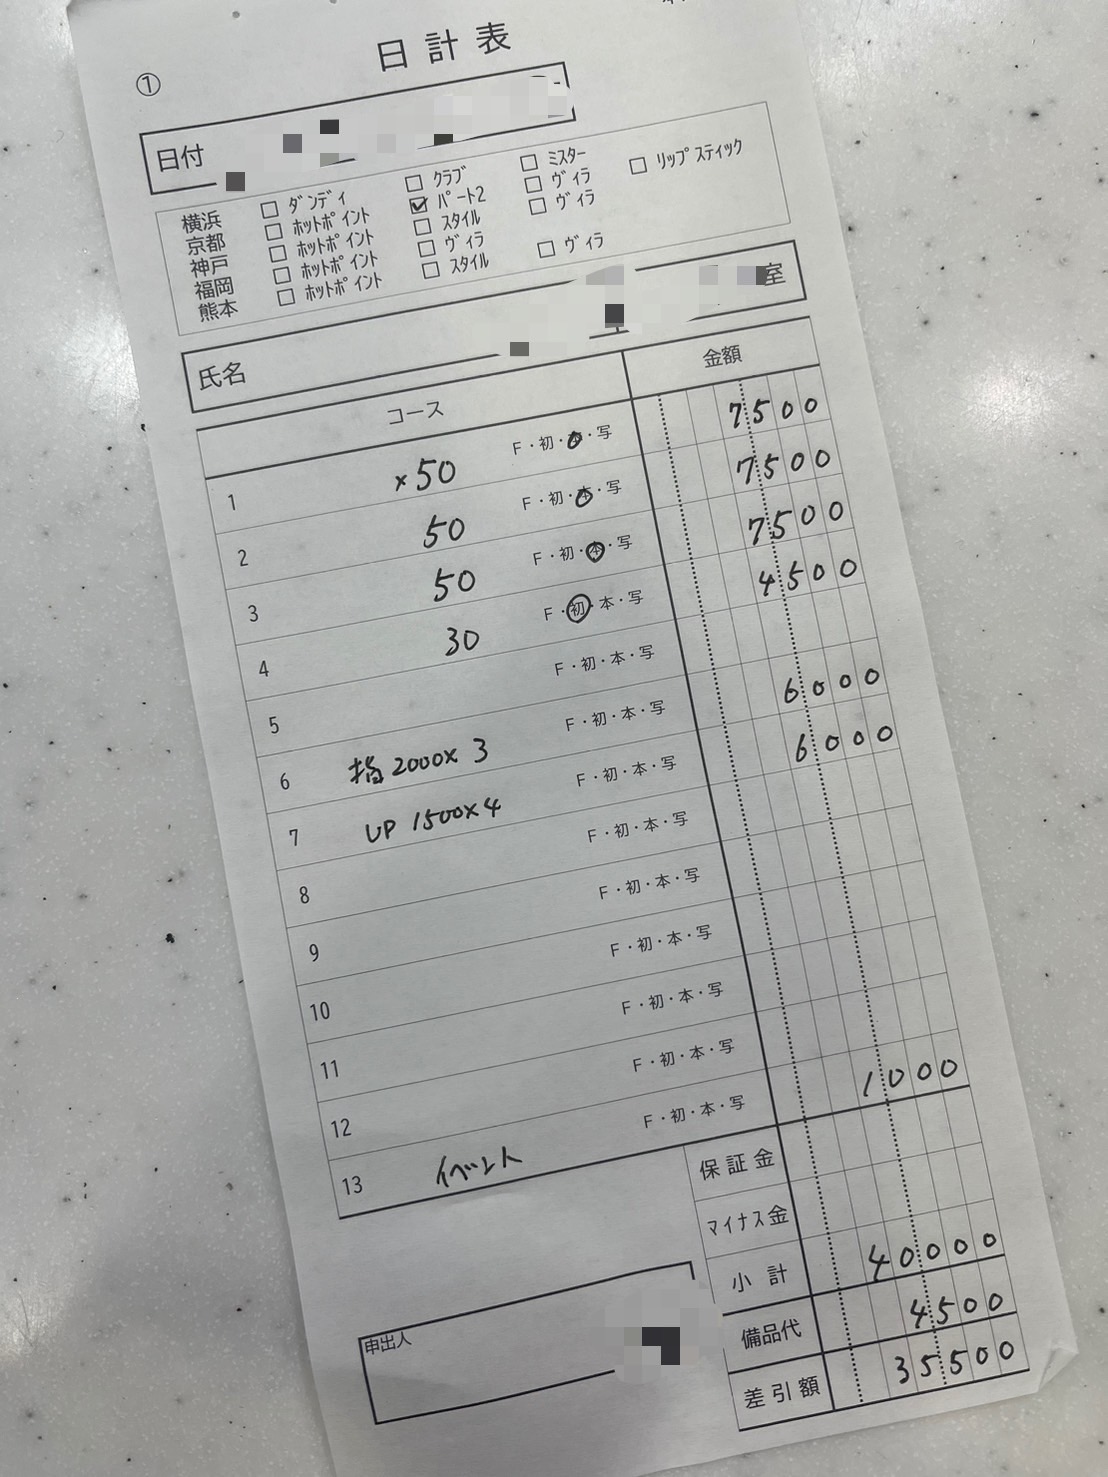 日計表
①
日付
横浜 □ ダンディ □ クラブ □ ミスター □ リップスティック
京都 □ ホットポイント ☑ パート2 □ ヴィラ
神戸 □ ホットポイント □ スタイル □ ヴィラ
福岡 □ ホットポイント □ ヴィラ
熊本 □ ホットポイント □ スタイル □ ヴィラ
室
氏名
コース 金額
1 ×50 F・初・本・写 7500
2 50 F・初・本・写 7500
3 50 F・初・本・写 7500
4 30 F・初・本・写 4500
5 F・初・本・写
6 指2000×3 F・初・本・写 6000
7 UP 1500×4 F・初・本・写 6000
8 F・初・本・写
9 F・初・本・写
10 F・初・本・写
11 F・初・本・写
12 F・初・本・写
13 イベント F・初・本・写 1000
保証金
マイナス金
小計 40000
備品代 4500
差引額 35500
申出人